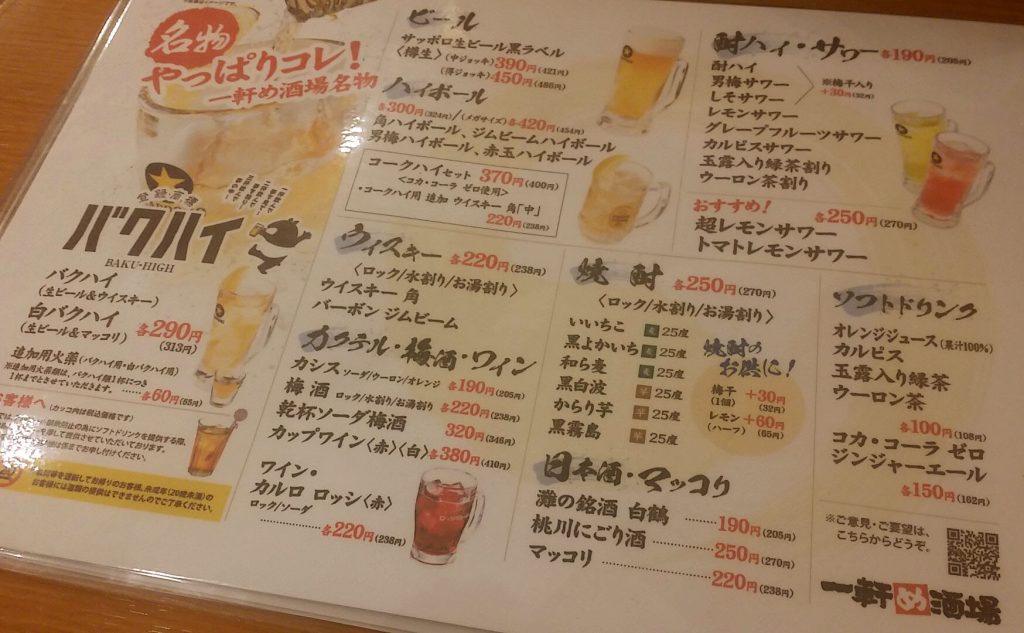 名物
やっぱりコレ!
一軒め酒場名物
登録商標
バクハイ
BAKU-HIGH
バクハイ
(生ビール&ウイスキー)
白バクハイ
(生ビール&マッコリ)
各290円
(313円)
追加用火薬(バクハイ用・白バクハイ用)
※追加用火薬類は、バクハイ類1杯につき
1杯までとさせていただきます。
各60円(65円)
お客様へ (カッコ内は税込価格です)
ビール
サッポロ生ビール黒ラベル
〈樽生〉(中ジョッキ)390円(421円)
(得ジョッキ)450円(486円)
ハイボール
各300円(324円)/(メガサイズ)各420円(454円)
角ハイボール、ジムビームハイボール
男梅ハイボール、赤玉ハイボール
コークハイセット 370円(400円)
<コカ・コーラ ゼロ使用>
・コークハイ用 追加 ウイスキー 角「中」
220円(238円)
ウィスキー 各220円(238円)
〈ロック/水割り/お湯割り〉
ウイスキー 角
バーボン ジムビーム
カクテル・梅酒・ワイン
カシス ソーダ/ウーロン/オレンジ 各190円(205円)
梅酒 ロック/水割り/お湯割り 各220円(238円)
乾杯ソーダ梅酒 320円(346円)
カップワイン〈赤〉〈白〉各380円(410円)
ワイン・
カルロ ロッシ〈赤〉
ロック/ソーダ
各220円(238円)
酎ハイ・サワー 各190円(205円)
酎ハイ
男梅サワー
しそサワー
※梅干入り
+30円(32円)
レモンサワー
グレープフルーツサワー
カルピスサワー
玉露入り緑茶割り
ウーロン茶割り
おすすめ! 各250円(270円)
超レモンサワー
トマトレモンサワー
焼酎 各250円(270円)
〈ロック/水割り/お湯割り〉
いいちこ 麦 25度
黒よかいち 麦 25度
和ら麦 麦 25度
黒白波 芋 25度
からり芋 芋 25度
黒霧島 芋 25度
焼酎の
お供に!
梅干 +30円
(1個) (32円)
レモン +60円
(ハーフ) (65円)
日本酒・マッコリ
灘の銘酒 白鶴 190円(205円)
桃川にごり酒 250円(270円)
マッコリ 220円(238円)
ソフトドリンク
オレンジジュース(果汁100%)
カルピス
玉露入り緑茶
ウーロン茶
各100円(108円)
コカ・コーラ ゼロ
ジンジャーエール
各150円(162円)
※ご意見・ご要望は、
こちらからどうぞ。
一軒め酒場